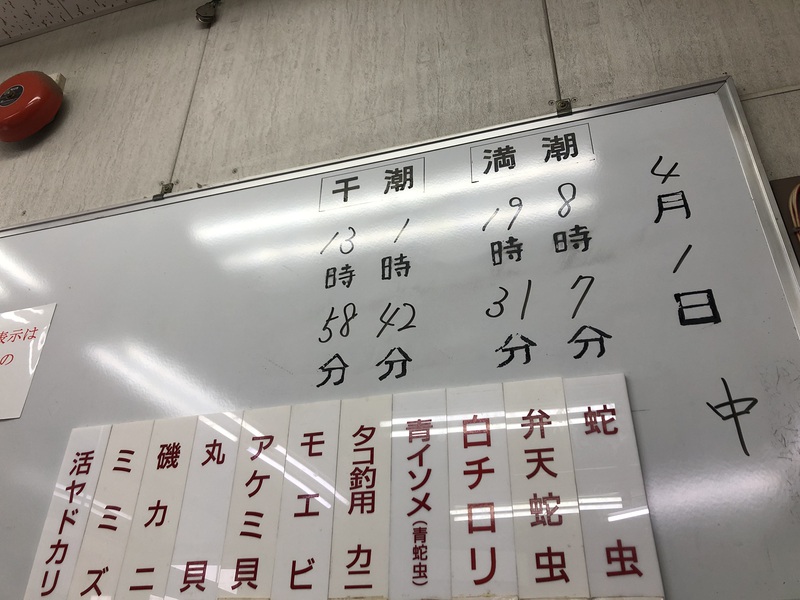 4月1日 中
満潮
8時7分
19時31分
干潮
1時42分
13時58分
蛇虫
弁天蛇虫
白チロリ
青イソメ(青蛇虫)
タコ釣用カニ
モエビ
アケミ貝
丸貝
磯カニ
ミミズ
活ヤドカリ
表示は
の